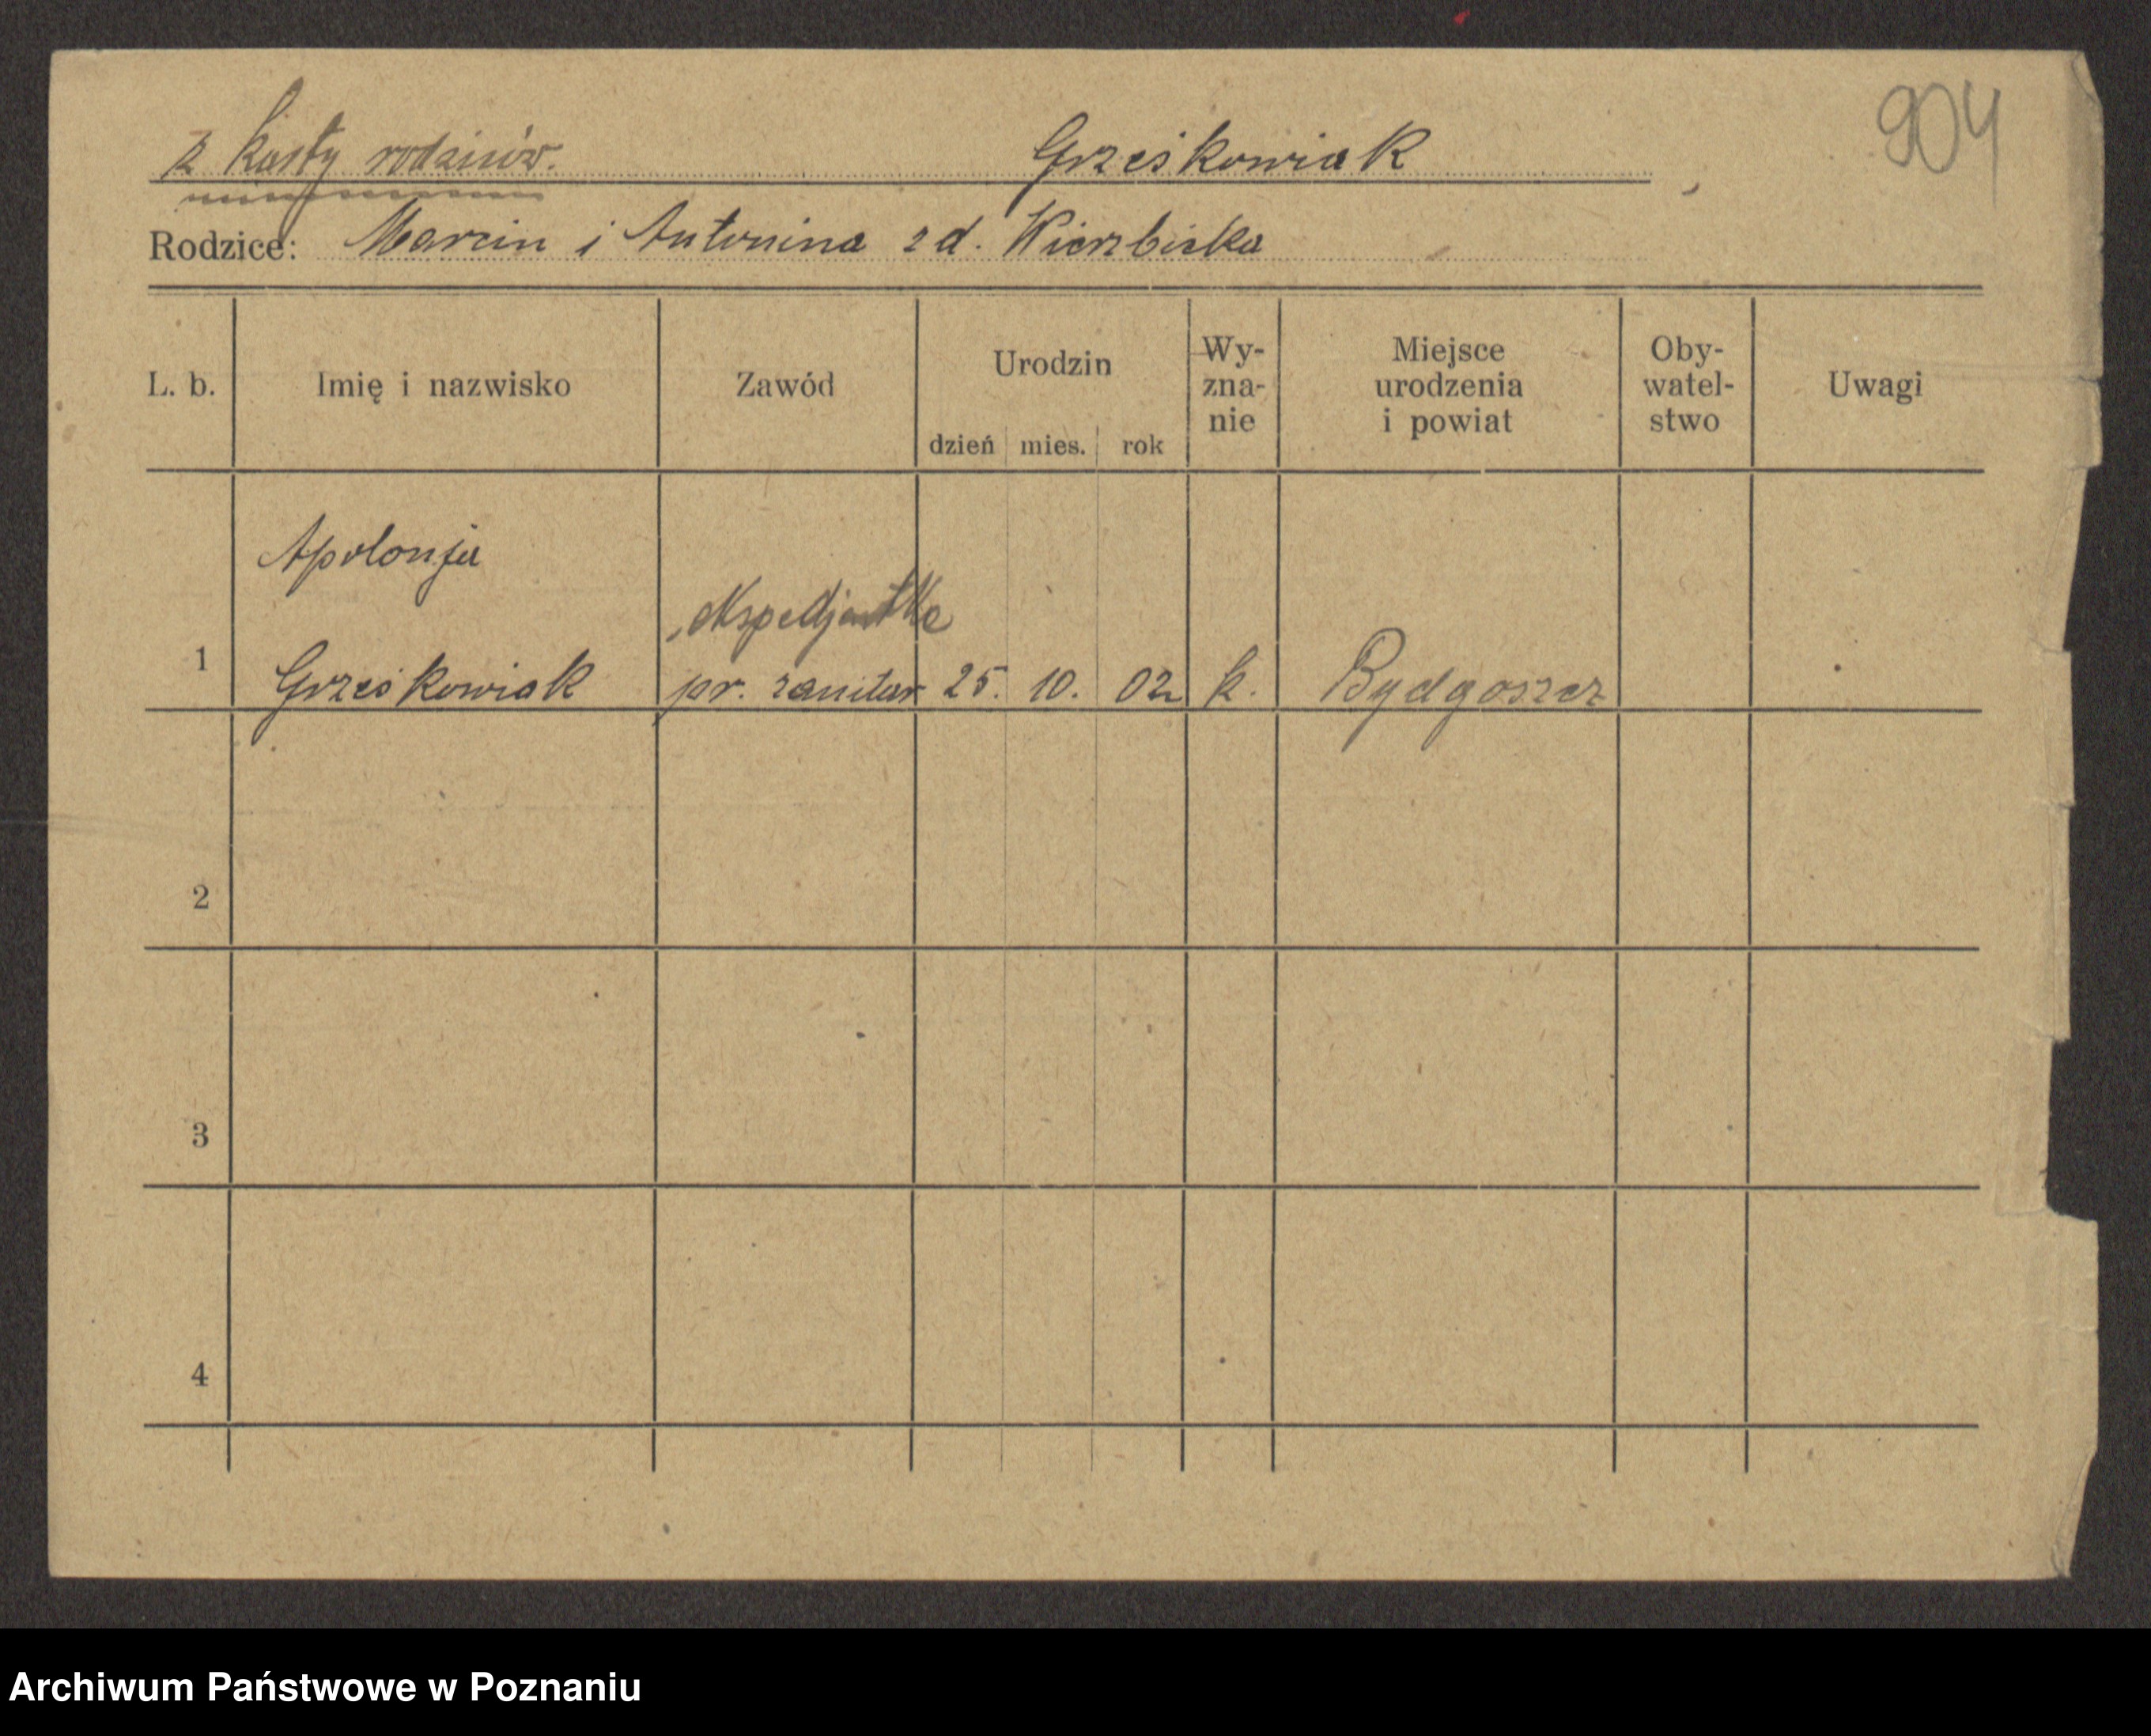 904
z karty rodziców. Grześkowiak
Rodzice: Marcin i Antonina zd. Wierzbicka
L. b. Imię i nazwisko Zawód Urodzin dzień mies. rok Wy-zna-nie Miejsce urodzenia i powiat Oby-watel-stwo Uwagi
Apolonja
ekspedjentka
1 Grześkowiak pr. sanitar 25. 10. 02 k. Bydgoszcz
2
3
4
Archiwum Państwowe w Poznaniu